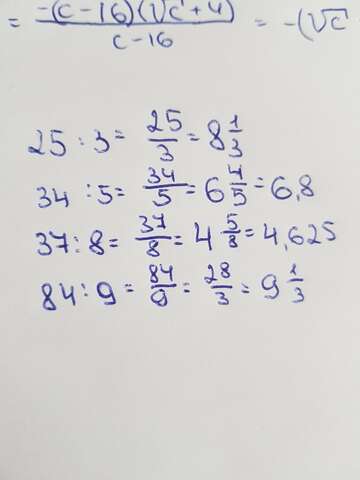 = -(c-16)(√c+4)/c-16 = -(√c
25 : 3 = 25/3 = 8 1/3
34 : 5 = 34/5 = 6 4/5 = 6,8
37 : 8 = 37/8 = 4 5/8 = 4,625
84 : 9 = 84/9 = 28/3 = 9 1/3